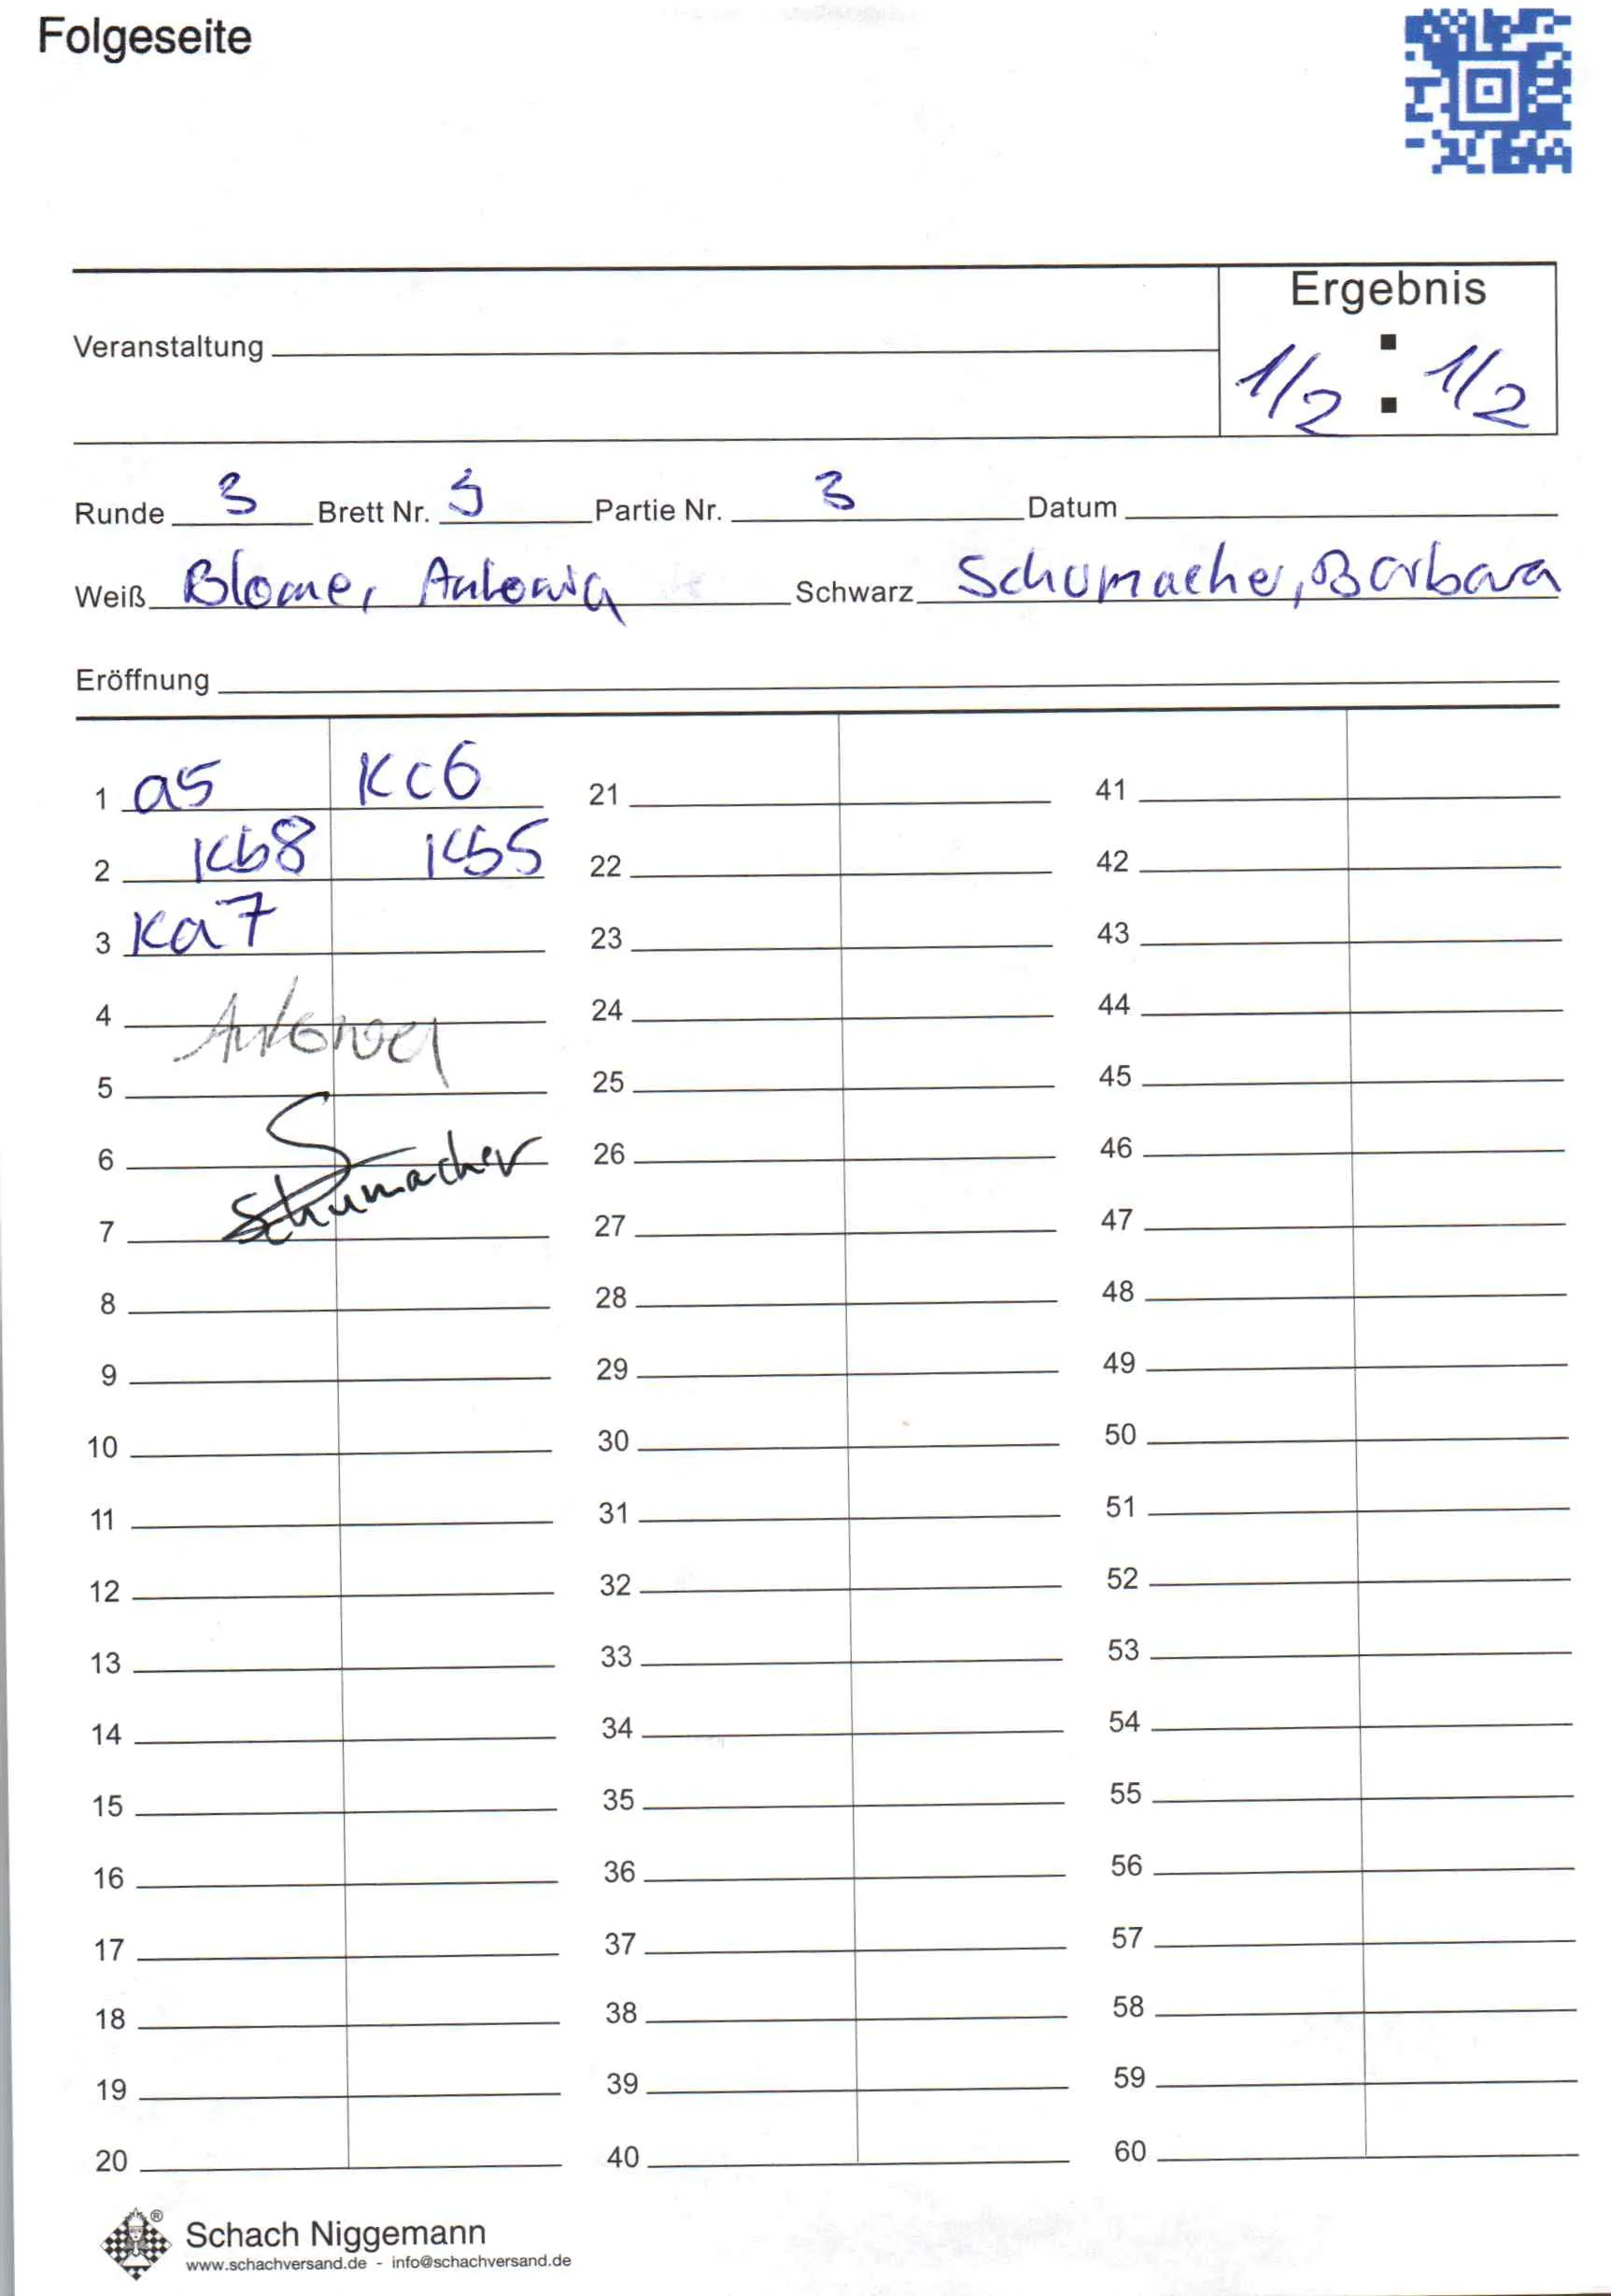 Folgeseite
Ergebnis
Veranstaltung
1/2 : 1/2
Runde 3 Brett Nr. 5 Partie Nr. 3 Datum
Weiß Blome, Antonia Schwarz Schumacher, Barbara
Eröffnung
1 a5 Kc6 21 41
2 Kb8 Kb5 22 42
3 Ka7 23 43
4 Antonia 24 44
5 25 45
6 Schumacher 26 46
7 27 47
8 28 48
9 29 49
10 30 50
11 31 51
12 32 52
13 33 53
14 34 54
15 35 55
16 36 56
17 37 57
18 38 58
19 39 59
20 40 60
Schach Niggemann
www.schachversand.de - info@schachversand.de